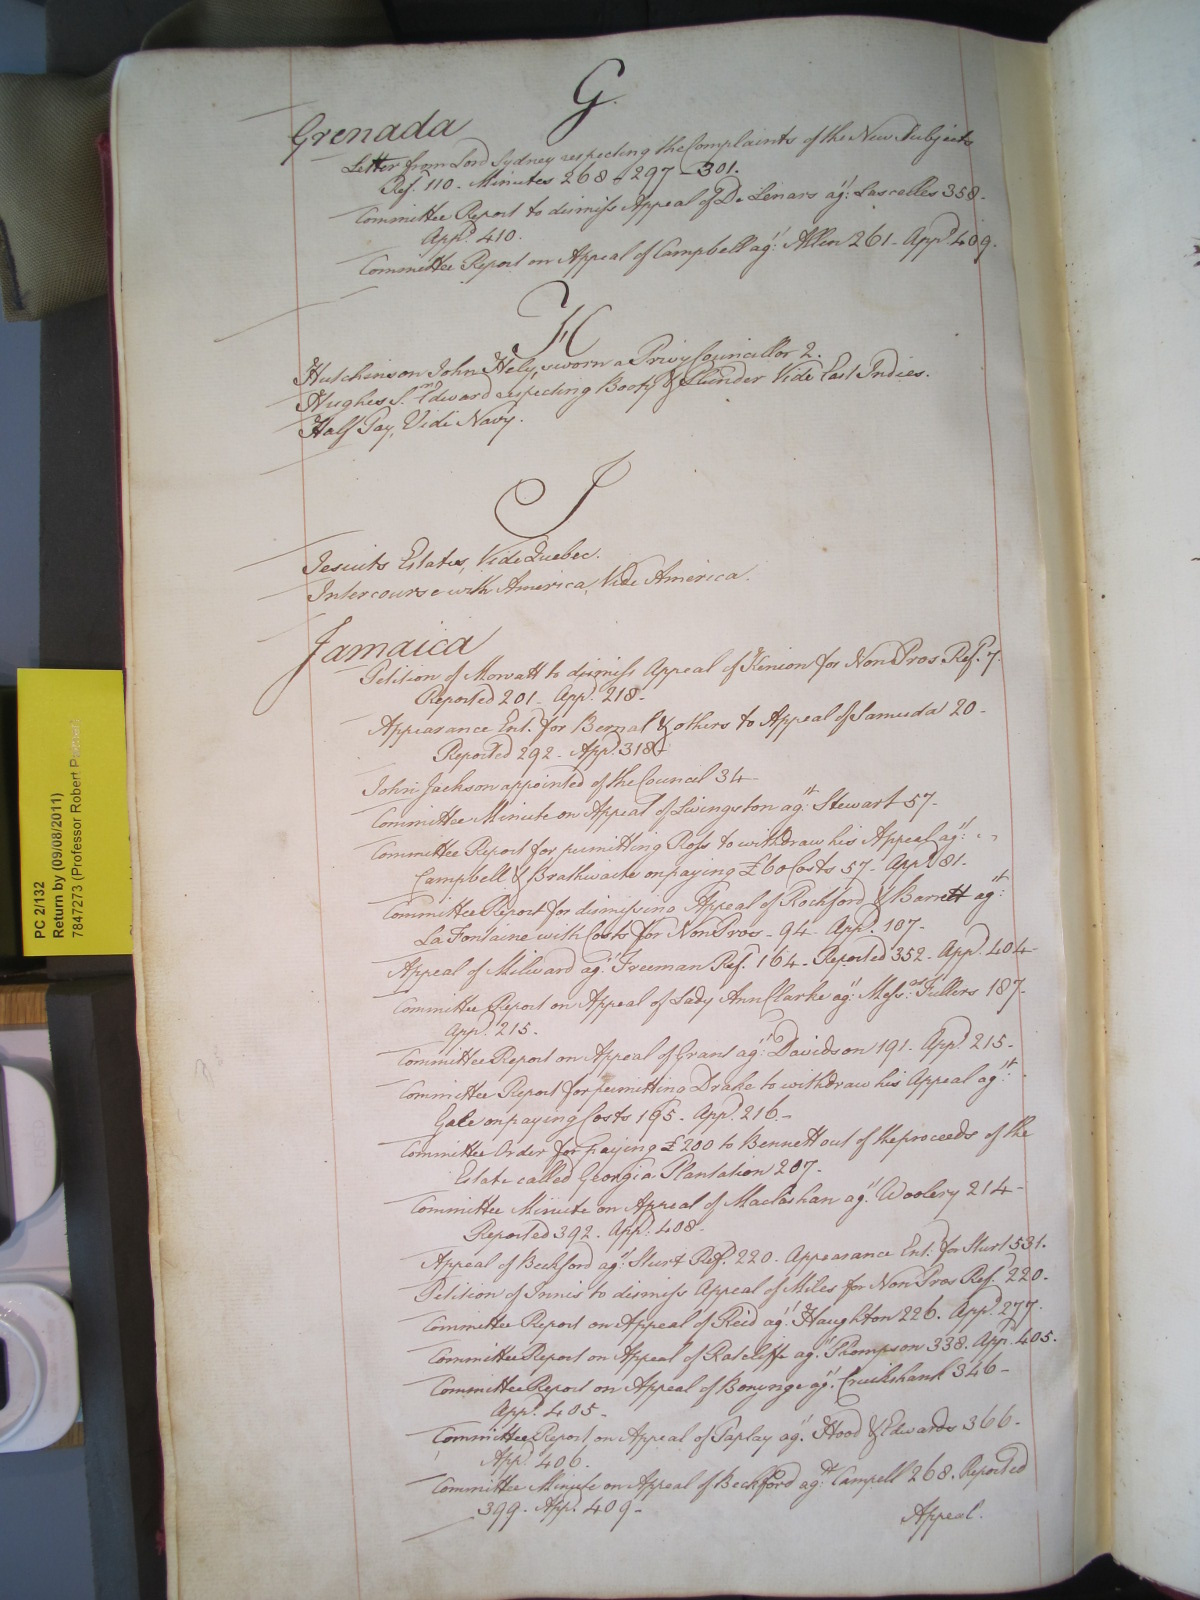 G
Grenada
Letter from Lord Sydney respecting the Complaints of the New Subjects
Ref. 110 - Minutes 268 - 297 - 301.
Committee Report to dismiss Appeal of De Lenars agt. Lascelles 358.
Appd. 410.
Committee Report on Appeal of Campbell agt. Allen 261 - Appd. 409.
H
Hutchinson John Hely, sworn a Privy Councillor 2.
Hughes Sr. Edward respecting Booty & Plunder Vide East Indies.
Half Pay, Vide Navy.
J
Jesuits Estates, Vide Quebec.
Intercourse with America, Vide America.
Jamaica
Petition of Mowatt to dismiss Appeal of Kenion for Non Pros Ref. 7.
Reported 201 - Appd. 218 -
Appearance Ent. for Bernal & others to Appeal of Samuda 20 -
Reported 292 - Appd. 318
John Jackson appointed of the Council 34 -
Committee Minute on Appeal of Livingston agt. Stewart 57 -
Committee Report for permitting Ross to withdraw his Appeal agt.
Campbell & Brathwaite on paying £60 Costs 57 - Appd. 81 -
Committee Report for dismissing Appeal of Rochford & Barnett agt.
La Fontaine with Costs for Non Pros - 94 - Appd. 107 -
Appeal of Milward agt. Freeman Ref. 164 - Reported 352 - Appd. 404 -
Committee Report on Appeal of Lady Ann Clarke agt. Messrs. Fullers 187 -
Appd. 215 -
Committee Report on Appeal of Grant agt. Davidson 191 - Appd. 215 -
Committee Report for permitting Drake to withdraw his Appeal agt.
Gale on paying Costs 195 - Appd. 216 -
Committee Order for paying £200 to Bennett out of the proceeds of the
Estate called Georgia Plantation 207 -
Committee Minute on Appeal of Maclashan agt. Woolery 214 -
Reported 392 - Appd. 408 -
Appeal of Beckford agt. Sturt Ref. 220. Appearance Ent. for Sturt 531.
Petition of Innis to dismiss Appeal of Miles for Non Pros Ref. 220 -
Committee Report on Appeal of Reid agt. Haughton 226. Appd. 277.
Committee Report on Appeal of Ratcliffe agt. Thompson 338. Appd. 405.
Committee Report on Appeal of Bonynge agt. Cruikshank 346 -
Appd. 405 -
Committee Report on Appeal of Taplay agt. Hood & Edwards 366 -
Appd. 406 -
Committee Minute on Appeal of Beckford agt. Campell 268. Reported
399 - Appd. 409 -
Appeal.
PC 2/132
Return by (09/08/2011)
7847273 (Professor Robert